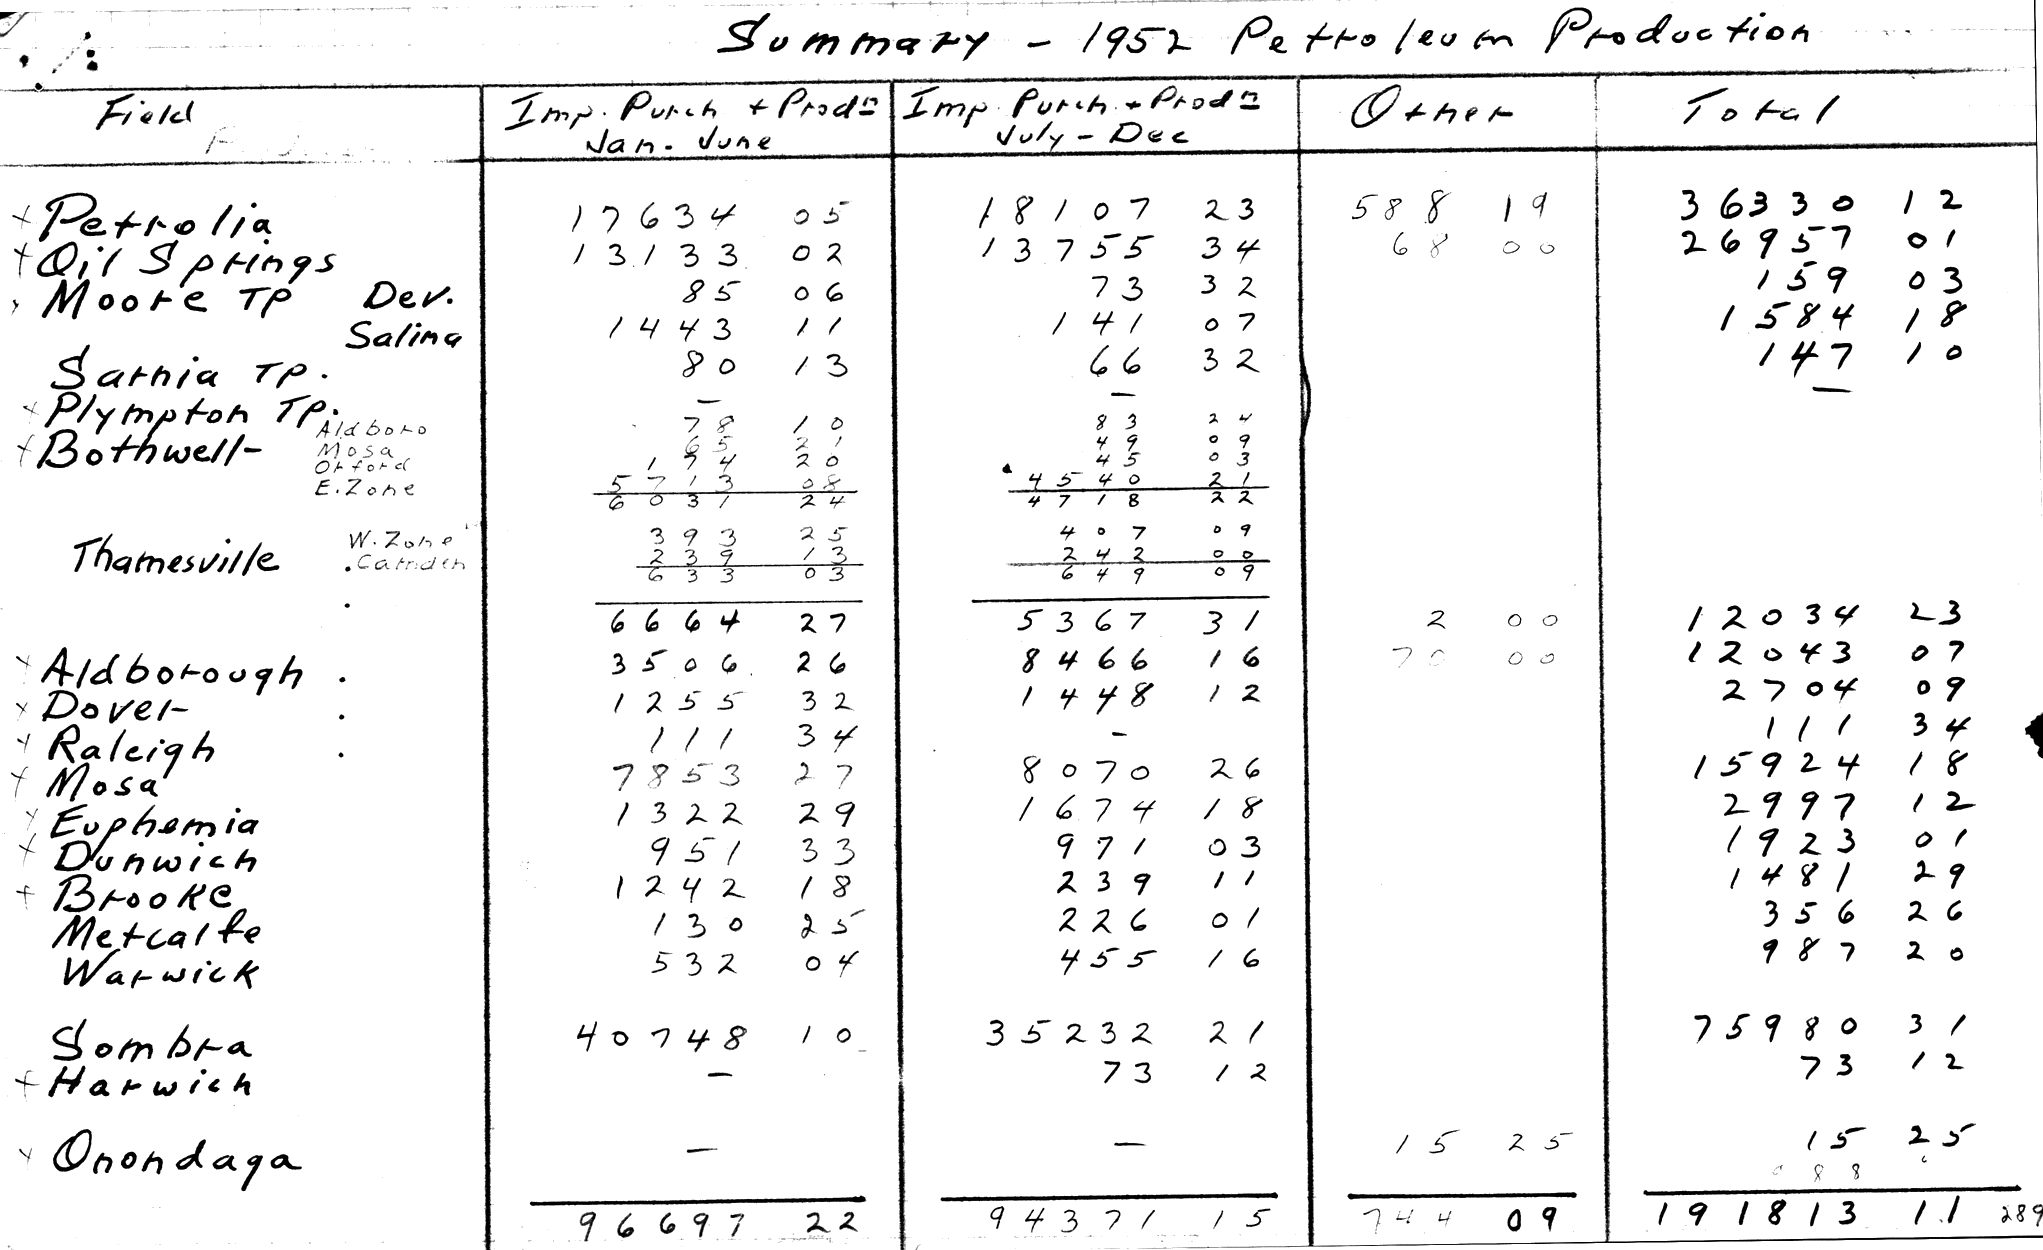 Summary - 1952 Petroleum Production
Field Imp. Purch + Prodn Imp. Purch. + Prodn Other Total
Jan. June July - Dec
+ Petrolia 17634 05 18107 23 588 19 36330 12
+ Oil Springs 13133 02 13755 34 68 00 26957 01
Moore TP Dev. 85 06 73 32 159 03
Salina 1443 11 141 07 1584 18
Sarnia TP. 80 13 66 32 147 10
+ Plympton TP. — — —
Aldboro 78 10 83 24
+ Bothwell - Mosa 65 21 49 09
Orford 174 20 45 03
E. Zone 5713 08 4540 21
6031 24 4718 22
W. Zone 393 25 407 09
Thamesville Camden 239 13 242 00
633 03 649 09
6664 27 5367 31 2 00 12034 23
+ Aldborough 3506 26 8466 16 70 00 12043 07
+ Dover 1255 32 1448 12 2704 09
+ Raleigh 111 34 - 111 34
+ Mosa 7853 27 8070 26 15924 18
+ Euphemia 1322 29 1674 18 2997 12
+ Dunwich 951 33 971 03 1923 01
+ Brooke 1242 18 239 11 1481 29
Metcalfe 130 25 226 01 356 26
Warwick 532 04 455 16 987 20
Sombra 40748 10 35232 21 75980 31
+ Harwich — 73 12 73 12
+ Onondaga — — 15 25 15 25
88
96697 22 94371 15 744 09 191813 11 289